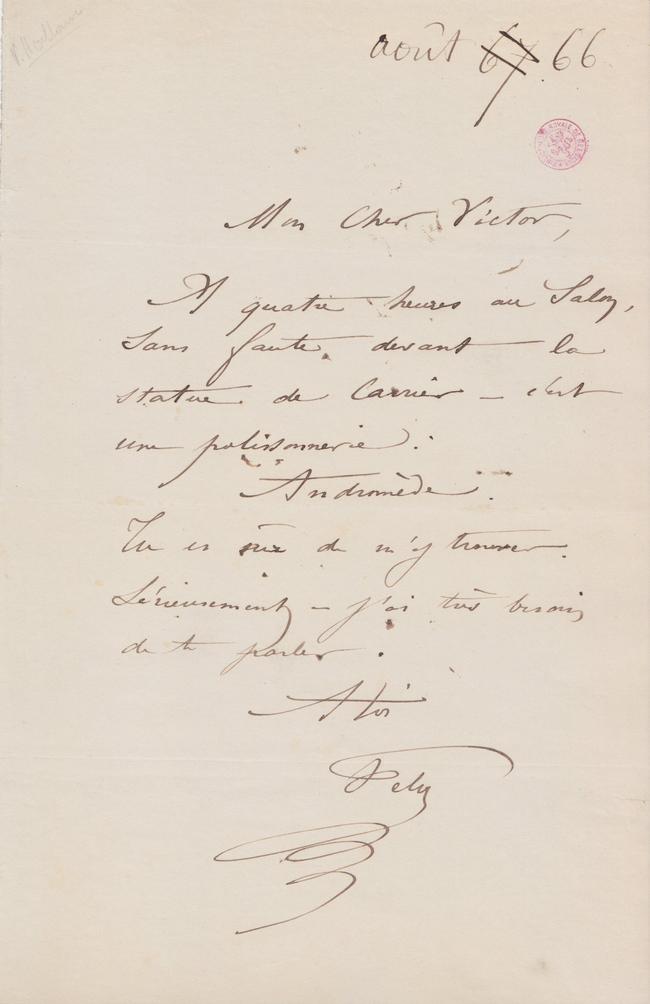 août ~~67~~ 66
Mon Cher Victor,
A quatre heures au Salon,
sans faute, devant la
statue de Carrier – c'est
une polissonnerie :
Andromède.
Tu es sûr de m'y trouver.
Sérieusement – j'ai très besoin
de te parler.
A toi
Fély